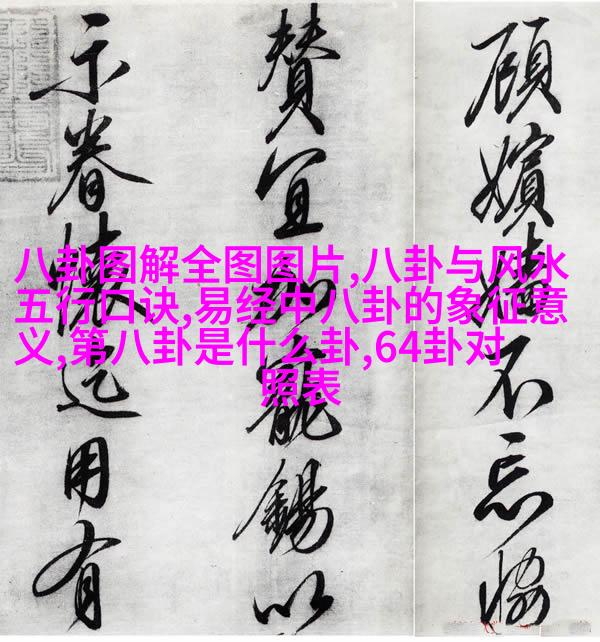 八卦图解全图图片,八卦与风水
五行口诀,易经中八卦的象征意
义,第八卦是什么卦,64卦对
照表
顧嬪嬙不忘協
贊宜加寵錫以
示眷懷迄用有